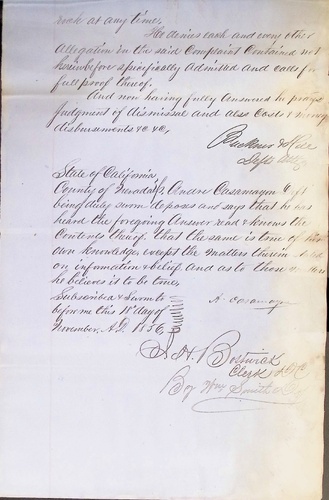 at any time,
He denies each and every other
Allegation in the said Complaint Contained not
hereinbefore specifically Admitted and calls for
full proof thereof.
And now having fully Answered he prays
Judgment of Dismissal and also Costs &
disbursements &c &c,
Buckner &
Defts Attys
State of California
County of Nevada Andre Casamayou Deft
being duly sworn deposes and says that he has
heard the foregoing Answer read & knows the
Contents thereof, that the same is true of his
own knowledge, except the matters therein
on information & belief and as to those
he believes it to be true,
Subscribed & Sworn to
before me this 18 day of
November, A.D. 1856
A. Casamayou
Bostwick
Clerk
By Wm Smith